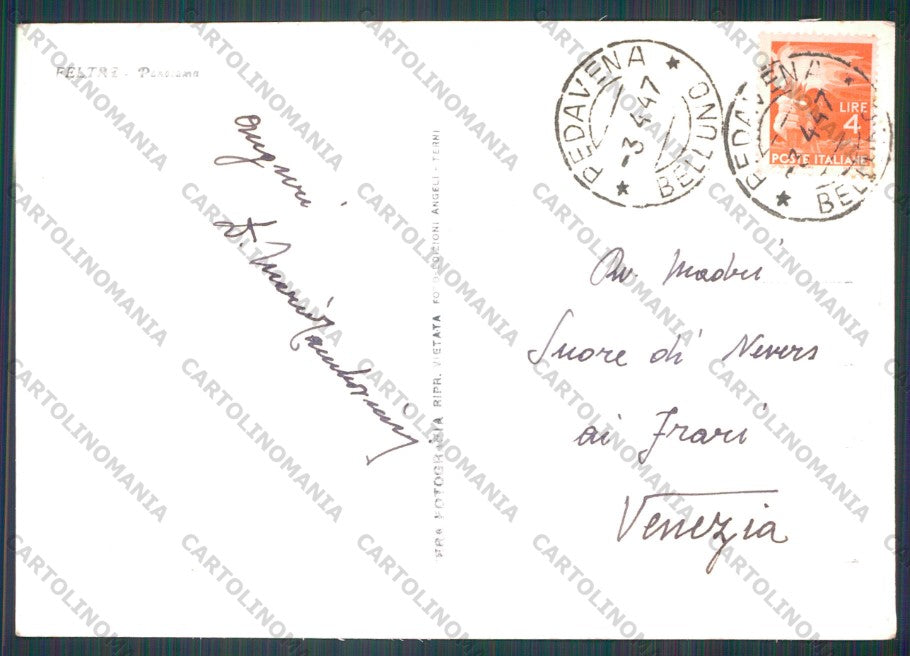 FELTRE - Panorama
auguri
D. Mario
VERA FOTOGRAFIA RIPR. VIETATA FOTO EDIZIONI ANGELI - TERNI
PEDAVENA * BELLUNO *
-3.4.47
PEDAVENA * BELLUNO *
-3.4.47
LIRE
4
POSTE ITALIANE
Rev. Madri
Suore di Nevers
ai Frari
Venezia
CARTOLINOMANIA